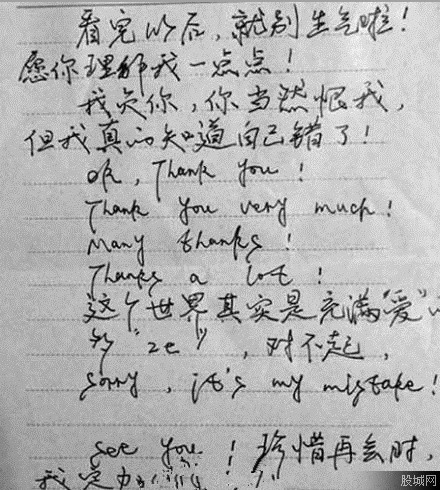 看完以后，就别生气啦！
愿你理解我一点点！
我欠你，你当然恨我，
但我真的知道自己错了！
ok, Thank you !
Thank you very much !
Many thanks !
Thanks a lot !
这个世界其实是充满“爱”的
“ze”，对不起，
sorry, it's my mistake !
see you ! 珍惜再会时，
我定
股城网